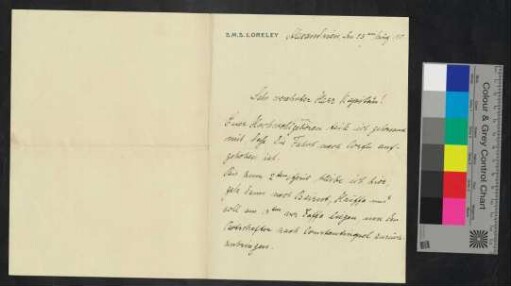 S.M.S. LORELEY
Alexandrien, den 23ten März
Sehr verehrter Herr Kapitän!
Euer Hochwohlgeboren teile ich gehorsamst
mit, daß die Fahrt nach Corfu auf-
gehoben ist.
Bis zum 2ten April bleibe ich hier,
gehe dann nach Beirut, Haiffa und
soll am ten vor Jaffa liegen um den
Botschafter nach Constantinopel zurück
zubringen.
Colour & Grey Control Chart